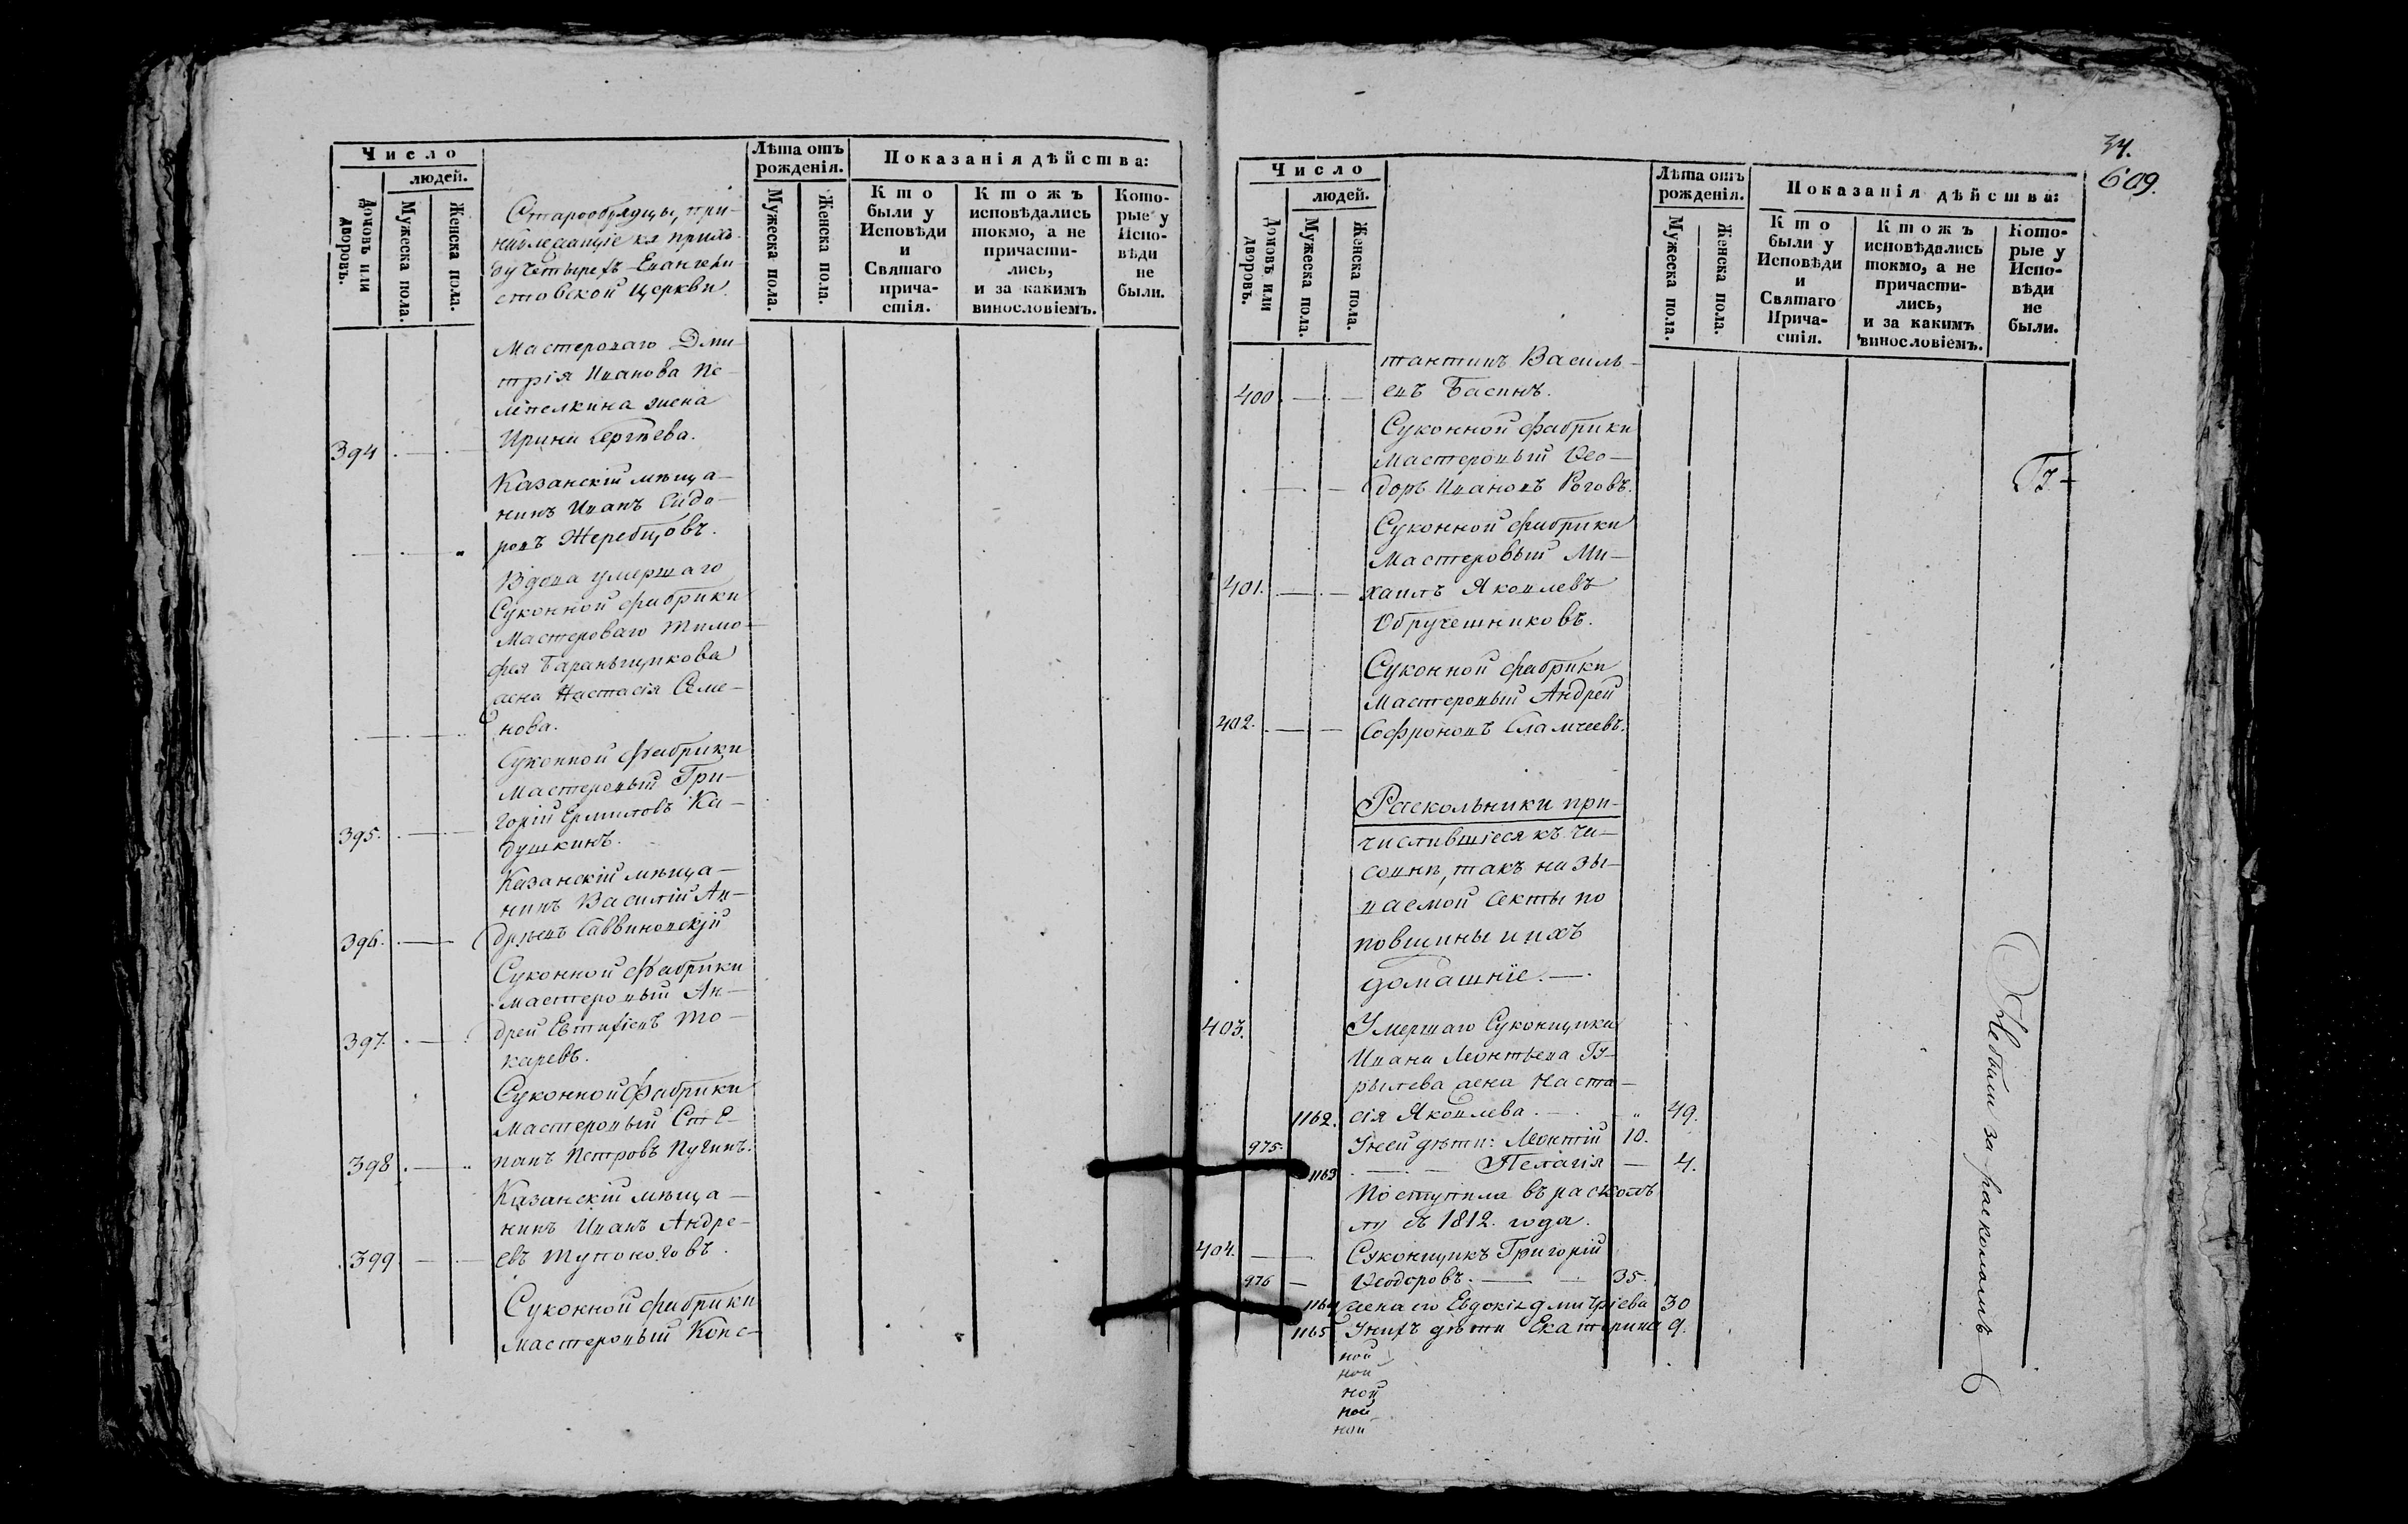 Число
людей.
Домовъ или дворовъ.
Мужеска пола.
Женска пола.
Лѣта отъ рожденія.
Мужеска пола.
Женска пола.
Показанія дѣйства:
Кто были у Исповѣди и Святаго причастія.
Ктожъ исповѣдались токмо, а не причастились, и за какимъ винословіемъ.
Которые у Исповѣди не были.
Старообрядцы, при-
надлежащіе къ прихо-
ду Четырехъ-Евангели
стовской церкви.
Мастероваго Дми-
трія Иванова Пе-
жена
394 Ирина Сергѣева.
Казанскій мѣща-
нинъ Иванъ Сидо-
ровъ Жеребцовъ.
Вдова умершаго
Суконной фабрики
Мастероваго Тимо-
фея Баранщикова
жена Настасія Семе-
нова.
Суконной фабрики
Мастеровый Гри-
395. горій Ермиловъ Ка-
душкинъ.
Казанскій мѣща-
нинъ Василій Ан-
396. дрѣевъ Саввиновскій
Суконной фабрики
мастеровый Ан-
397. дрей Евтифіевъ То-
каревъ.
Суконной фабрики
Мастеровый Сте-
398 панъ Петровъ Пугинъ.
Казанскій мѣща-
нинъ Иванъ Андре-
399 евъ Тупоноговъ.
Суконной фабрики
мастеровый Конс-
34.
609.
Число
людей.
Домовъ или дворовъ.
Мужеска пола.
Женска пола.
Лѣта отъ рожденія.
Мужеска пола.
Женска пола.
Показанія дѣйства:
Кто были у Исповѣди и Святаго Причастія.
Ктожъ исповѣдались токмо, а не причастились, и за какимъ винословіемъ.
Которые у Исповѣди не были.
тантинъ Василь-
400. евъ Басинъ.
Суконной фабрики
Мастеровый Ѳео-
доръ Ивановъ Роговъ.
Суконной фабрики
Мастеровый Ми-
401. хаилъ Яковлевъ
Обручешниковъ.
Суконной фабрики
Мастеровый Андрей
402. Софроновъ Сламчеевъ.
Раскольники при-
числившіеся къ ча-
совнѣ, такъ назы-
ваемой секты по
повщины и ихъ
домашніе.
403. Умершаго Суконщика
Ивана Леонтьева Гу-
рылева жена Наста-
1162. сія Яковлева. 49.
975. У ней дѣти: Леонтій 10.
1163 Пелагія 4.
Поступила въ расколъ
съ 1812. года.
404. Суконщикъ Григорій
976 Ѳеодоровъ. 35.
1164 жена его Евдокія Дмитріева 30
1165 У нихъ дѣти Екатерина 9.
ной
ной
ной
ной
ной
Не были за расколомъ